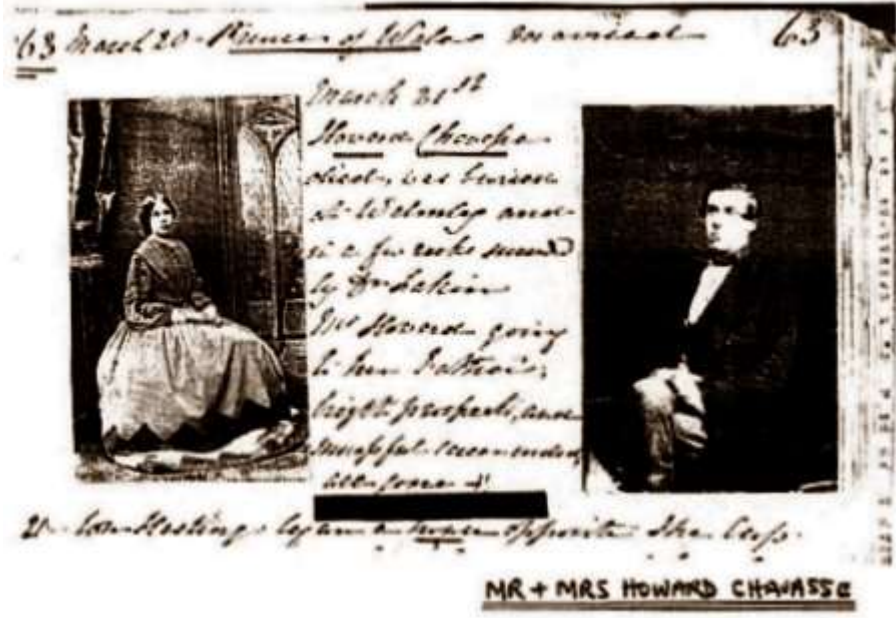 63 March 20 - Prince of Wales married 63
March 21st
Howard Chavasse
died, was buried
at Wylmley and
in a few weeks
by Dr Lakin
Mrs Howard going
to her Father's,
bright prospects, and
successful
all gone
21 began a house opposite the
MR + MRS HOWARD CHAVASSE